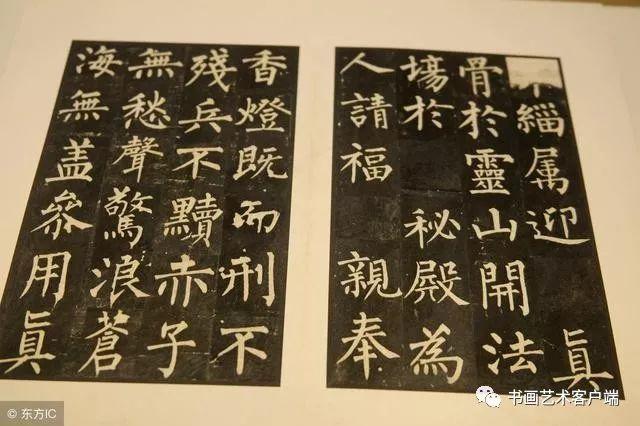 緇属迎 眞
骨於靈山開法
塲於 秘殿為
人請福 親奉
香燈既而刑不
殘兵不黷赤子
無愁聲驚浪蒼
海無蓋叅用眞
© 东方IC
书画艺术客户端